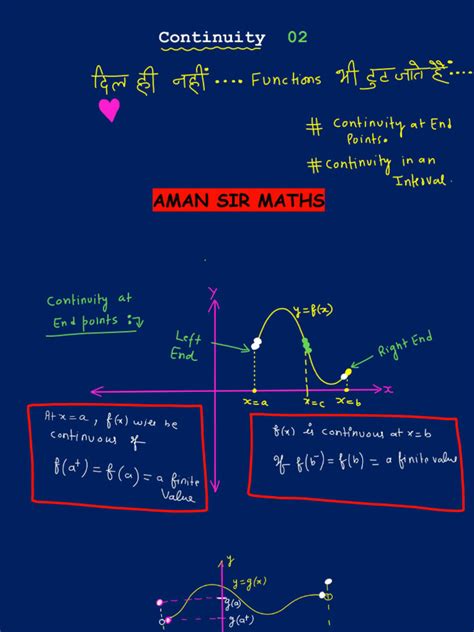 Continuity 02
दिल ही नहीं.... Functions भी टुट जाते हैं....
# Continuity at End
Points.
# Continuity in an
Interval.
AMAN SIR MATHS
Continuity at
End points :→
y
y=f(x)
Left
End
Right End
x=a
x=c
x=b
x
At x=a, f(x) will be
continuous if
f(a⁺) = f(a) = a finite
value
f(x) is continuous at x=b
If f(b⁻) = f(b) = a finite value
y
y=g(x)
g(a)
g(a⁺)